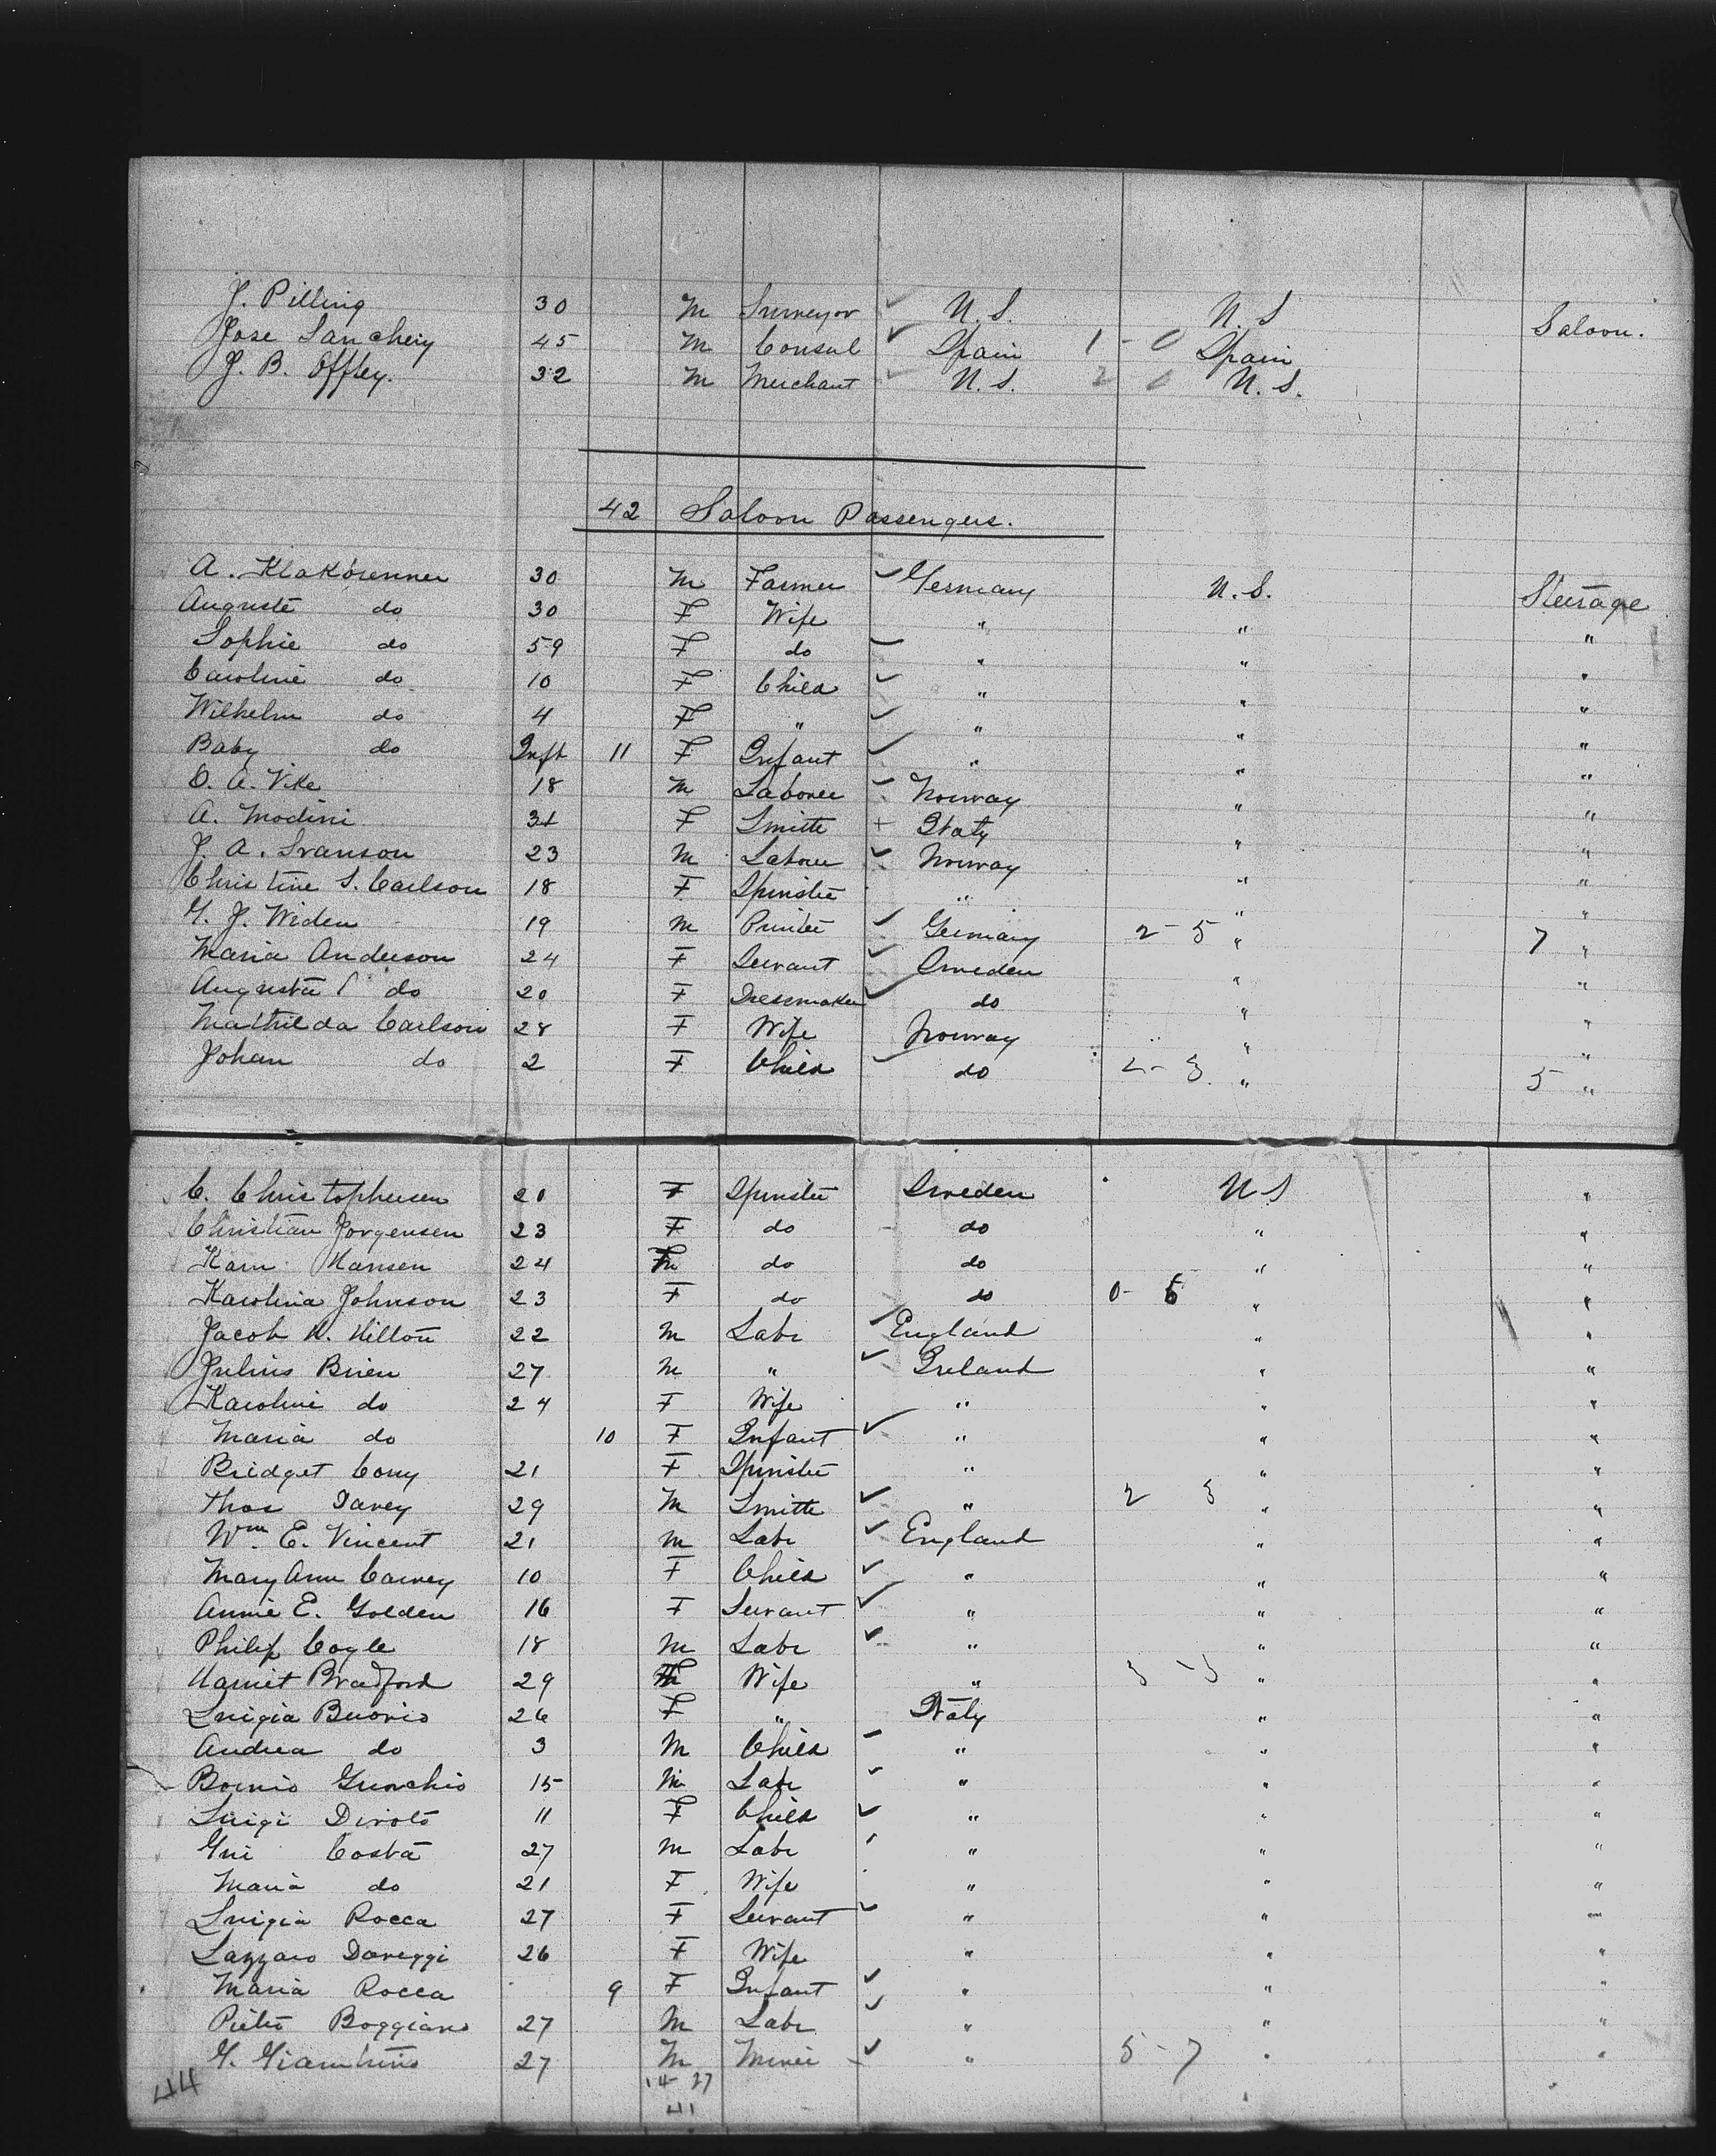 J. Pilling 30 M Surveyor U.S. U.S Saloon.
Jose Sanchery 45 M Consul Spain 1 - 0 Spain
J. B. Offley. 32 M Merchant U.S. 2 0 U.S.
42 Saloon Passengers.
A. Klakbrenner 30 M Farmer Germany U.S. Steerage
Auguste do 30 F Wife " " "
Sophie do 59 F do " " "
Caroline do 10 F Child " " "
Wilhelm do 4 F " " " "
Baby do Inft 11 F Infant " " "
O. A. Vike 18 M Laborer Norway " "
A. Modini 31 F Smith + Italy " "
J. A. Svanson 23 M Laborer Norway " "
Christine S. Carlson 18 F Spinster " " "
G. J. Widen 19 M Printer Germany 2 - 5 " 7 "
Maria Anderson 24 F Servant Sweden " "
Augusta do 20 F Dressmaker do " "
Mathilda Carlson 28 F Wife Norway " "
Johan do 2 F Child do 2 - 3 " 5 "
C. Christophersen 20 F Spinster Sweden U S "
Christian Jorgensen 23 F do do " "
Karn Hansen 24 F do do " "
Karolina Johnson 23 F do do 0 - 6 " "
Jacob H. Hilton 22 M Labr England " "
Julius Brien 27 M " Ireland " "
Karoline do 24 F Wife " " "
Maria do 10 F Infant " " "
Bridget Cony 21 F Spinster " " "
Thos Davey 29 M Smith " 2 3 " "
Wm. E. Vincent 21 M Labr England " "
Mary Ann Carney 10 F Child " " "
Annie E. Golden 16 F Servant " " "
Philip Coyle 18 M Labr " " "
Harriet Bradford 29 F Wife " 3 - 3 " "
Luigia Buorio 26 F " Italy " "
Andrea do 3 M Child " " "
Bornio Grunchio 15 M Labr " " "
Luigi Diroto 11 F Child " " "
Gui Costa 27 M Labr " " "
Maria do 21 F Wife " " "
Luigia Rocca 27 F Servant " " "
Lazzaro Daveggi 26 F Wife " " "
Maria Rocca 9 F Infant " " "
Pietro Boggiano 27 M Labr " " "
G. Giambrino 27 M Miner " 5 - 7 " "
44 14 27
41